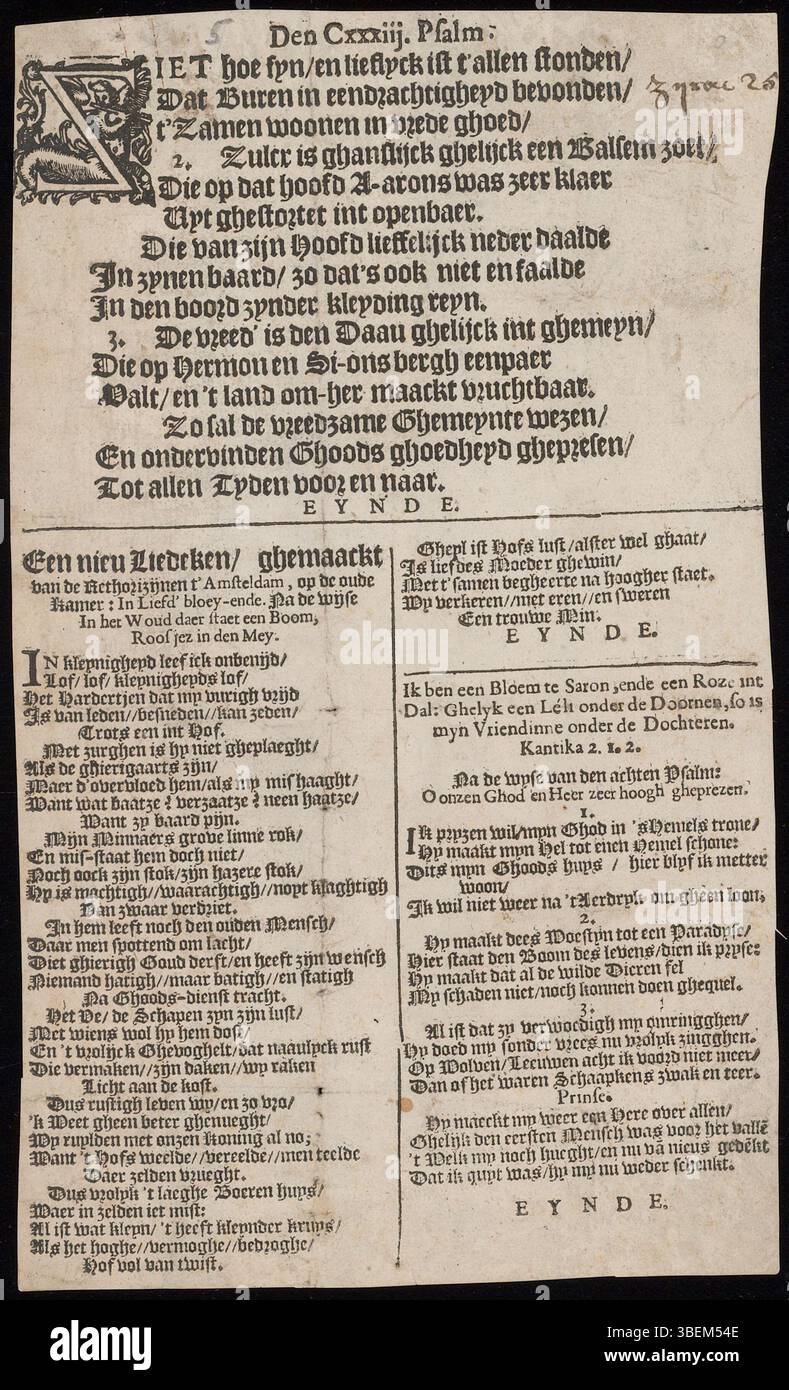 Den Cxxxiij. Psalm:
ZIET hoe fyn/en lieflyck ist t'allen stonden/
Dat Buren in eendrachtigheyd bevonden/
t'Zamen woonen in vrede ghoed/
2. Zulcx is ghanslijck ghelijck een Balsem zoet/
Die op dat hoofd A-arons was zeer klaer
Uyt ghestortet int openbaer.
Die van zijn Hoofd lieffelijck neder daalde
In zynen baard/ zo dat's ook niet en faalde
In den boord zynder kleyding reyn.
3. De vreed' is den Daau ghelijck int ghemeyn/
Die op Hermon en Si-ons bergh eenpaer
Valt/en 't land om-her maackt vruchtbaar.
Zo sal de vreedzame Ghemeynte wezen/
En ondervinden Ghoods ghoedheyd ghepresen/
Tot allen Tyden voor en naar.
EYNDE.
Een nieu Liedeken/ ghemaackt
van de Rethorizijnen t'Amsteldam, op de oude
Kamer: In Liefd' bloey-ende. Na de wijse
In het Woud daer staet een Boom,
Roosjez in den Mey.
IN kleynigheyd leef ick onbenijd/
Lof/lof/kleynigheyds lof/
Het Hardertjen dat my vurigh vrijd
Is van leden//besneden//kan zeden/
Trots een int Hof.
Met zurghen is hy niet gheplaeght/
Als de ghierigaarts zijn/
Maer d'overvloed hem/als my mishaaght/
Want wat baatze? verzaatze? neen haatze/
Want zy baard pijn.
Mijn Minnaers grove linne rok/
En mis-staat hem doch niet/
Noch oock zijn stok/zijn hazere stok/
Hy is machtigh//waarachtigh//noyt klaghtigh
Van zwaar verdriet.
In hem leeft noch den ouden Mensch/
Daar men spottend om lacht/
Diet ghierigh Goud derft/en heeft zijn wensch
Niemand hatigh//maar batigh//en statigh
Na Ghoods-dienst tracht.
Het Ve/ de Schapen zyn zijn lust/
Met wiens wol hy hem dost/
En 't vrolijck Ghevoghelt/dat naaulyck rust
Die vermaken//zijn daken//wy raken
Licht aan de kost.
Dus rustigh leven wy/en zo vro/
'k Weet gheen beter ghenueght/
Wy ruylden met onzen koning al no;
Want 't Hofs weelde//vereelde//men teelde
Daer zelden vrueght.
Dus vrolyk 't laeghe Boeren huys/
Waer in zelden iet mist:
Al ist wat kleyn/'t heeft kleynder kruys/
Als het hoghe//vermoghe//bedroghe/
Hof vol van twist.
Gheyl ist Hofs lust/alster wel ghaat/
Is liefdes Moeder ghewin/
Met t'samen begheerte na hoogher staet.
Wy verkeren//met eren//en sweren
Een trouwe Min.
EYNDE.
Ik ben een Bloem te Saron, ende een Roze int
Dal: Ghelyk een Léli onder de Doornen, so is
myn Vriendinne onder de Dochteren.
Kantika 2. 1. 2.
Na de wyse van den achten Psalm:
O onzen Ghod en Heer zeer hoogh gheprezen.
1.
IK pryzen wil/myn Ghod in 'sHemels trone/
Hy maakt myn Hel tot enen Hemel schone:
Dits myn Ghoods huys / hier blyf ik metter
woon/
Ik wil niet weer na 't Aerdryk om gheen loon.
2.
Hy maakt dees Woestyn tot een Paradyse/
Hier staat den Boom des levens/dien ik pryse:
Hy maakt dat al de wilde Dieren fel
My schaden niet/noch konnen doen ghequel.
3.
Al ist dat zy verwoedigh my omringghen/
Hy doed my sonder vrees nu vrolyk zingghen.
Op Wolven/Leeuwen acht ik voord niet meer/
Dan of het waren Schaapkens zwak en teer.
Prinse.
Hy maeckt my weer een Here over allen/
Ghelijk den eersten Mensch was voor het vallē
't Welk my noch hueght/en nu vā nieus gedēkt
Dat ik quyt was/hy my nu weder schenkt.
EYNDE.
alamy
Image ID: 3BEM54E
www.alamy.com